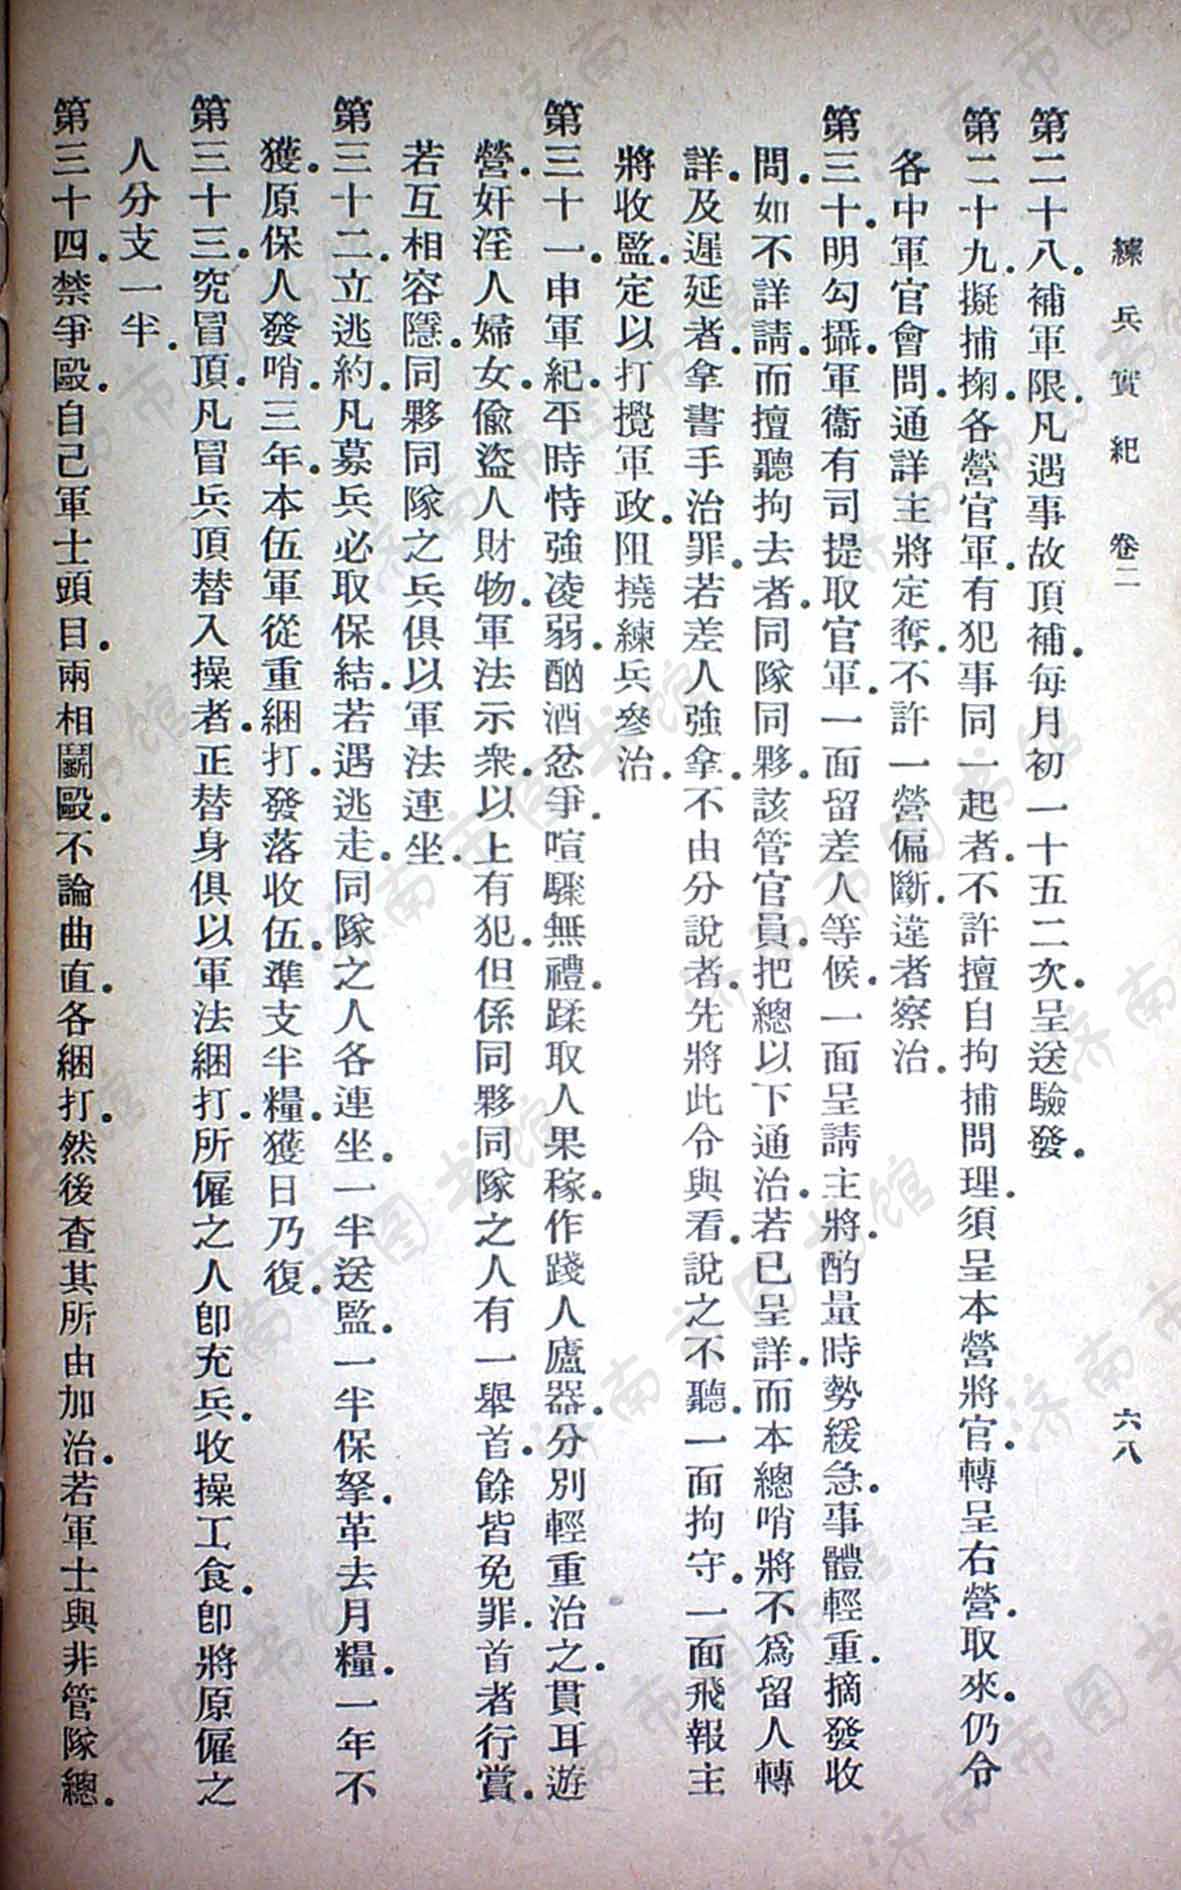 練兵實紀 卷二 六八
第二十八.補軍限.凡遇事故頂補.每月初一十五二次.呈送驗發.
第二十九.擬捕掬.各營官軍.有犯事同一起者.不許擅自拘捕問理.須呈本營將官.轉呈右營.取來.仍令
各中軍官會問.通詳主將定奪.不許一營偏斷.違者察治.
第三十.明勾攝.軍衞有司提取官軍.一面留差人等候.一面呈請主將.酌量時勢緩急.事體輕重.摘發收
問.如不詳請.而擅聽拘去者.同隊同夥.該管官員.把總以下通治.若已呈詳.而本總哨將不爲留人轉
詳.及遲延者.拿書手治罪.若差人強拿.不由分說者.先將此令與看.說之不聽.一面拘守.一面飛報主
將收監.定以打攪軍政.阻撓練兵參治.
第三十一.申軍紀.平時恃強凌弱.酗酒忿爭.喧驟無禮.蹂取人果稼.作踐人廬器.分別輕重治之.貫耳遊
營.奸淫人婦女.偷盜人財物.軍法示衆.以上有犯.但係同夥同隊之人有一舉首.餘皆免罪.首者行賞.
若互相容隱.同夥同隊之兵.俱以軍法連坐.
第三十二.立逃約.凡募兵必取保結.若遇逃走.同隊之人各連坐.一半送監.一半保拏.革去月糧.一年不
獲.原保人發哨.三年.本伍軍從重綑打.發落收伍.準支半糧.獲日乃復.
第三十三.究冒頂.凡冒兵頂替入操者.正替身俱以軍法綑打.所僱之人卽充兵.收操工食.卽將原僱之
人分支一半.
第三十四.禁爭毆.自己軍士頭目.兩相鬭毆.不論曲直.各綑打.然後查其所由加治.若軍士與非管隊總.